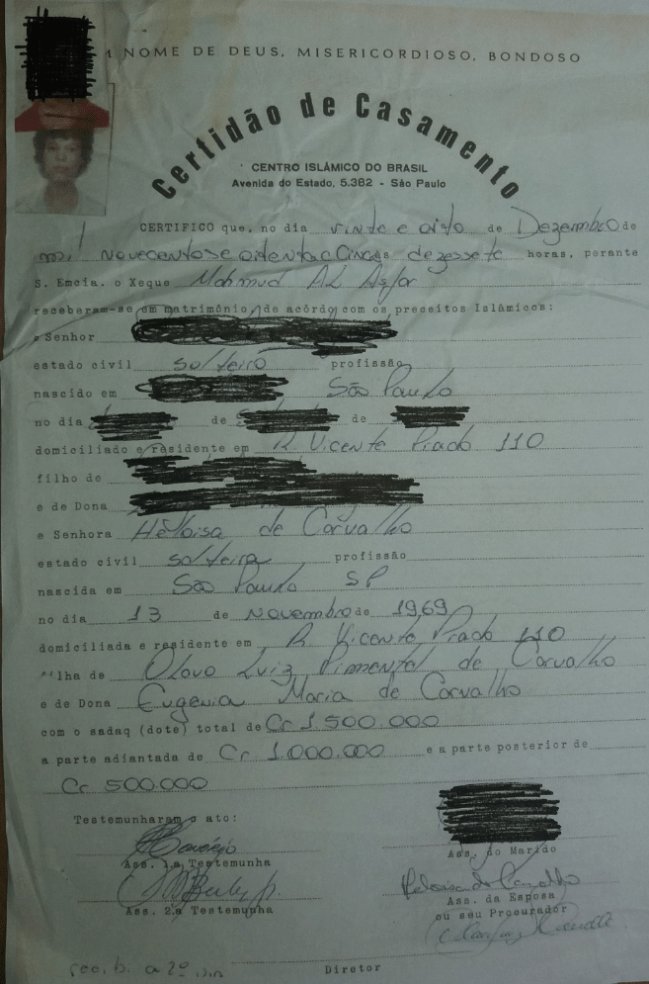 M NOME DE DEUS, MISERICORDIOSO, BONDOSO
Certidão de Casamento
CENTRO ISLÂMICO DO BRASIL
Avenida do Estado, 5.382 - São Paulo
CERTIFICO que, no dia vinte e oito de Dezembro de
mil novecentos e oitenta e cinco às dezessete horas, perante
S. Emcia. o Xeque Mahmud
receberam-se em matrimônio, de acôrdo com os preceitos Islâmicos:
Senhor
estado civil solteiro profissão
nascido em São Paulo
no dia de de
domiciliado e residente em R. Vicente Prado 110
filho de
e de Dona
e Senhora Hêloisa de Carvalho
estado civil solteira profissão
nascida em São Paulo SP
no dia 13 de novembro de 1969
domiciliada e residente em R Vicente Prado 110
filha de Olavo Luiz Pimentel de Carvalho
e de Dona Eugenia Maria de Carvalho
com o sadaq (dote) total de Cr 1.500.000
a parte adiantada de Cr 1.000.000 e a parte posterior de
Cr 500.000
Testemunharam o ato:
Ass. do Marido
Ass. 1a Testemunha
Ass. da Esposa
ou seu Procurador
Ass. 2a Testemunha
Diretor